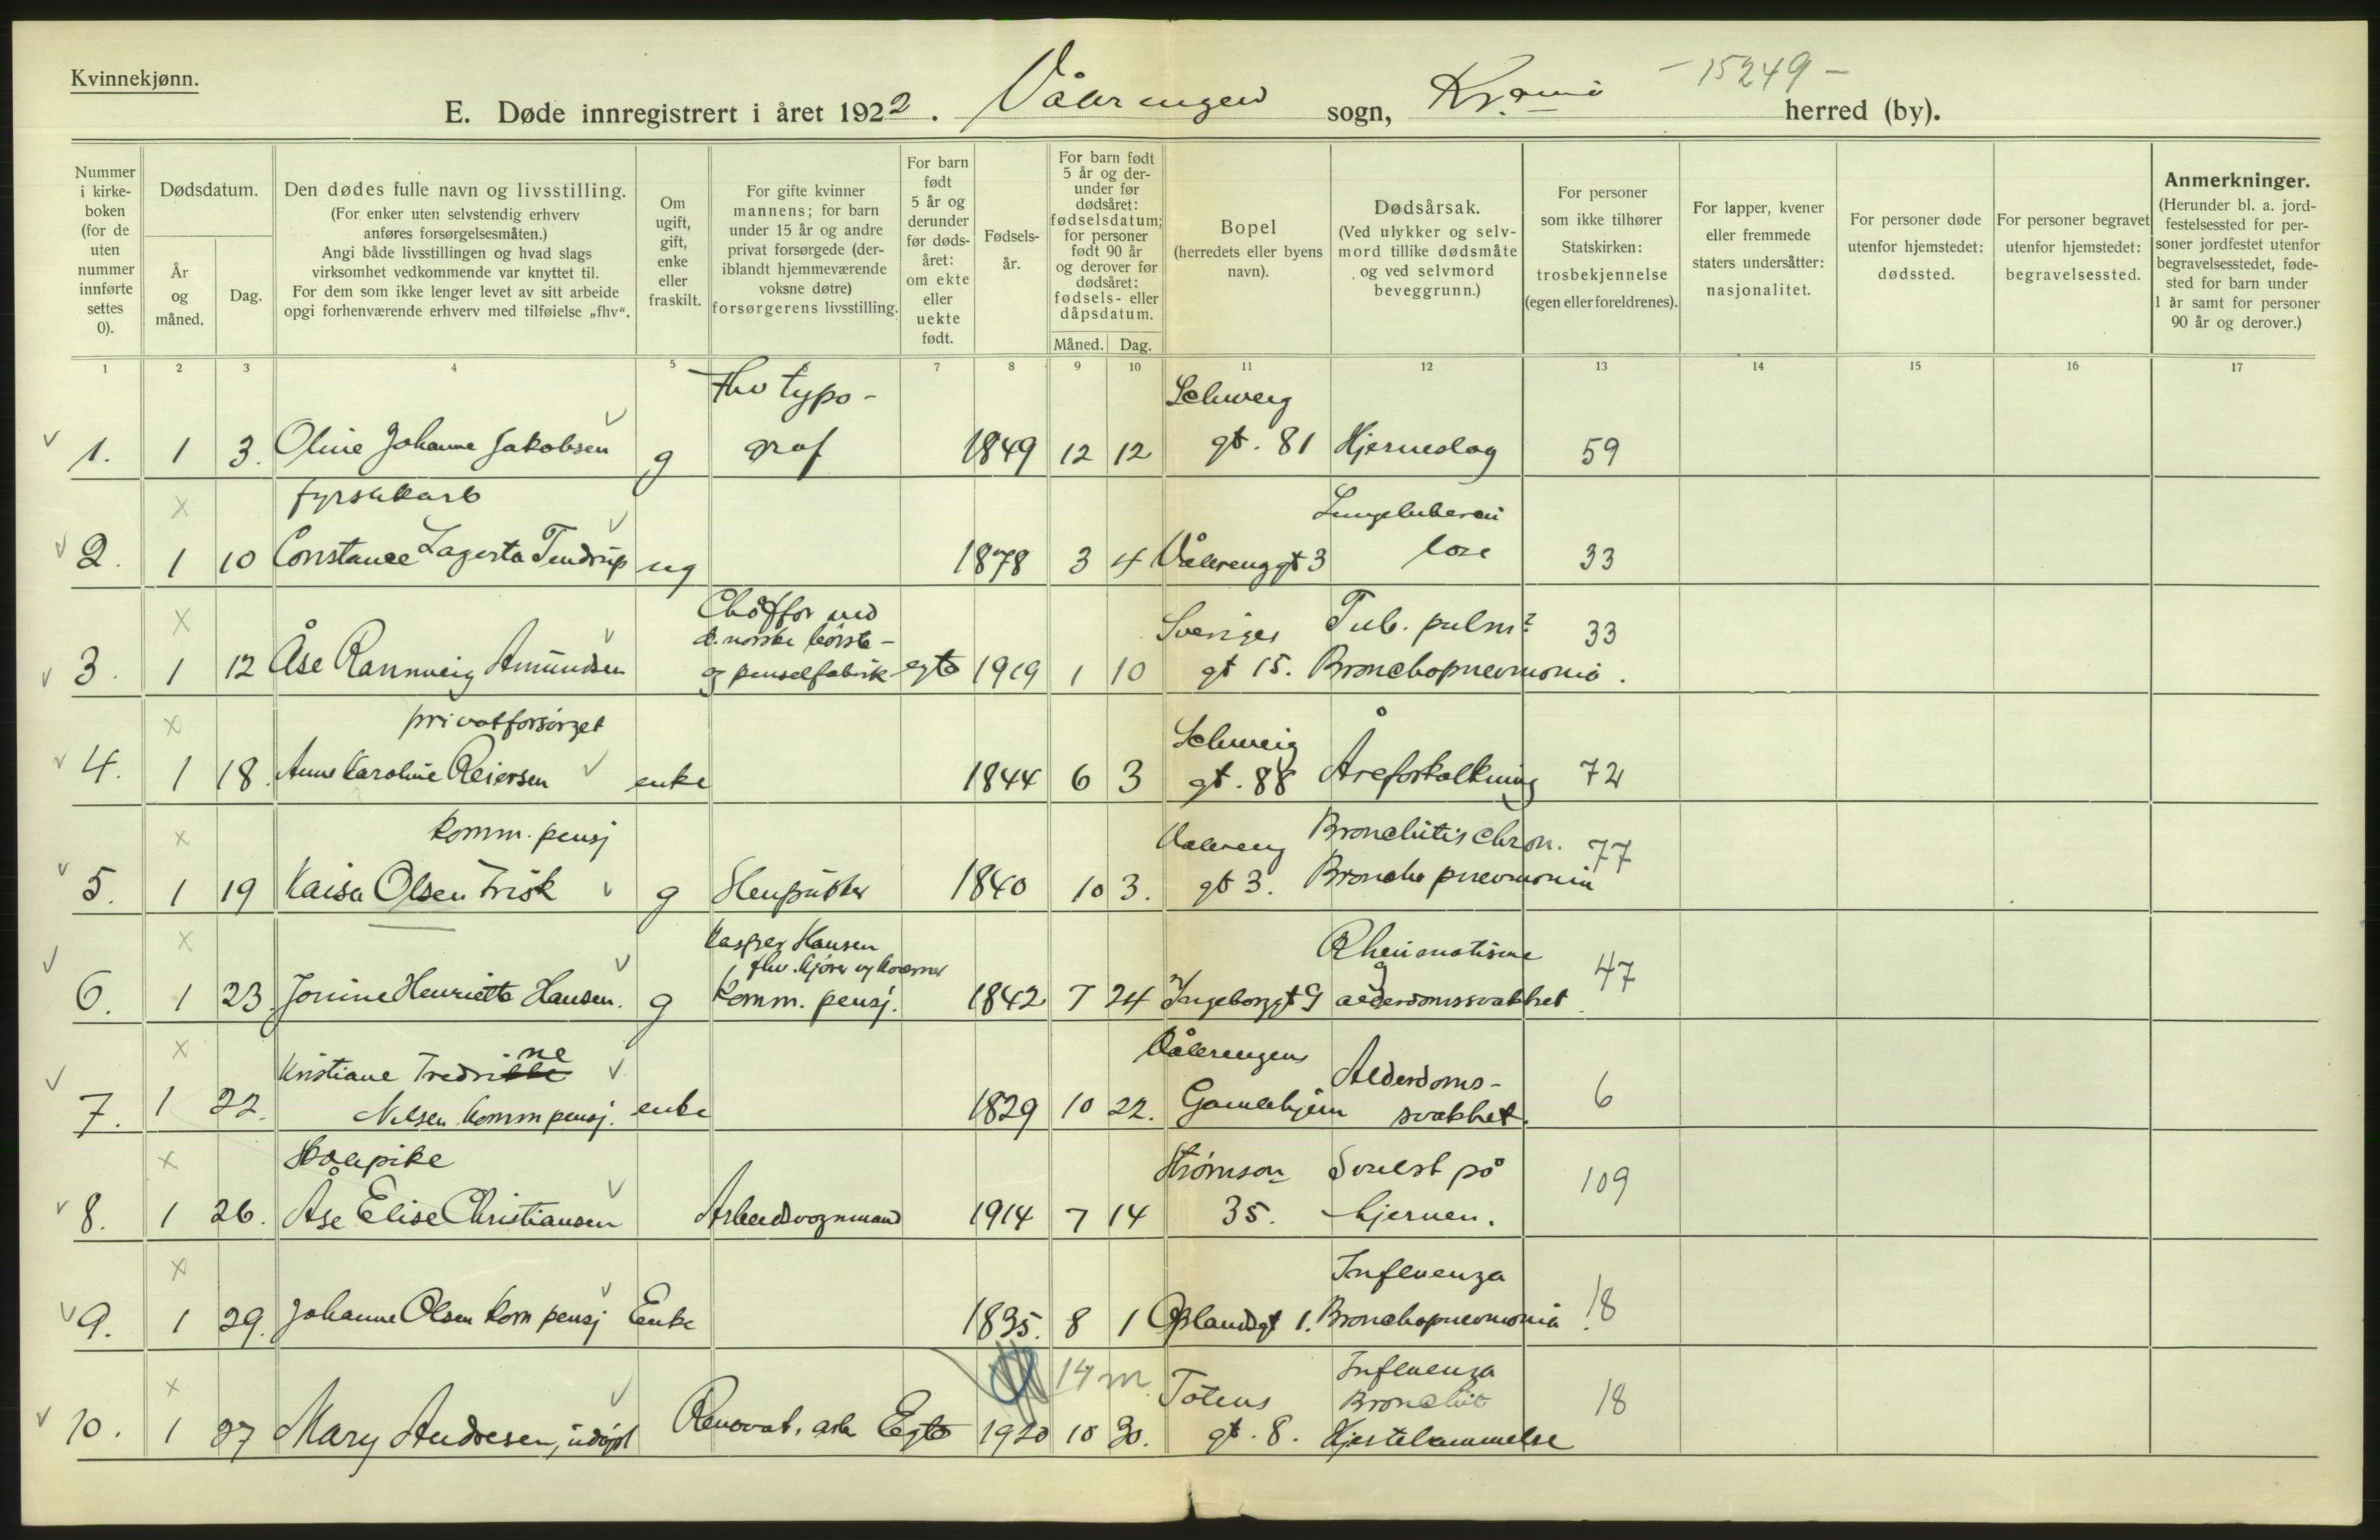 Kvinnekjønn.
- 15249 -
E. Døde innregistrert i året 1922. Vålerengen sogn, Kr.ania herred (by).
Nummer i kirke- boken (for de uten nummer innførte settes 0).
Dødsdatum.
År og måned.
Dag.
Den dødes fulle navn og livsstilling.
(For enker uten selvstendig erhverv anføres forsørgelsesmåten.)
Angi både livsstillingen og hvad slags virksomhet vedkommende var knyttet til.
For dem som ikke lenger levet av sitt arbeide opgi forhenværende erhverv med tilføielse „fhv“.
Om ugift, gift, enke eller fraskilt.
For gifte kvinner mannens; for barn under 15 år og andre privat forsørgede (der- iblandt hjemmeværende voksne døtre) forsørgerens livsstilling.
For barn født 5 år og derunder før døds- året: om ekte eller uekte født.
Fødsels- år.
For barn født 5 år og der- under før dødsåret: fødselsdatum; for personer født 90 år og derover før dødsåret: fødsels- eller dåpsdatum.
Måned. Dag.
Bopel (herredets eller byens navn).
Dødsårsak. (Ved ulykker og selv- mord tillike dødsmåte og ved selvmord beveggrunn.)
For personer som ikke tilhører Statskirken: trosbekjennelse (egen eller foreldrenes).
For lapper, kvener eller fremmede staters undersåtter: nasjonalitet.
For personer døde utenfor hjemstedet: dødssted.
For personer begravet utenfor hjemstedet: begravelsessted.
Anmerkninger. (Herunder bl. a. jord- festelsessted for per- soner jordfestet utenfor begravelsesstedet, føde- sted for barn under 1 år samt for personer 90 år og derover.)
1 2 3 4 5 6 7 8 9 10 11 12 13 14 15 16 17
Fhv typo- Schweig
1. 1 3. Oline Johanne Jakobsen g graf 1849 12 12 gt. 81 Hjerneslag 59
x
2. 1 10 Constance Lagerta Tendrup ug 1878 3 4 Vålerenggt 3 lose 33
x Choffør ved
d. norske børste- Sveriges Tub. pulm? 33
3. 1 12 Åse Rannveig Amundsen og penselfabrik egte 1919 1 10 gt 15. Bronchopneumonia.
x privatforsørget Schweig
4. 1 18. Anne Karoline Reiersen enke 1844 6 3 gt. 88 Åreforkalkning 72
x komm. pensj Vålereng Bronchitis chron. 77
5. 1 19 Kaisa Olsen Frisk g 1840 10 3. gt 3. Broncho pneumonia
x Kasper Hansen Rheumatisme
fhv. kjører og
6. 1 23. Jonine Henriette Hansen. g Komm. pensj. 1842 7 24 Ingeborggt 9 og alderdomssvakhet 47
x ne Vålerengens
Kristiane Fredrikke Alderdoms- 6
7. 1 22. Nilsen komm pensj. enke 1829 10 22. Gamlehjem svakhet.
x Skolepike Strømsvn Svulst på 109
8. 1 26. Åse Elise Christiansen Arbeidsvognmand 1914 7 14 35. hjernen.
x Influenza
9. 1 29. Johanne Olsen kom pensj Enke 1835. 8 1 Oplandsgt 1. Bronchopneumonia 18
x 14 m Totens Influenza
Bronchit 18
10. 1 27 Mary Andresen, udøpt Renovat. arb Egte 1920 10 30. gt. 8. Hjertelammelse